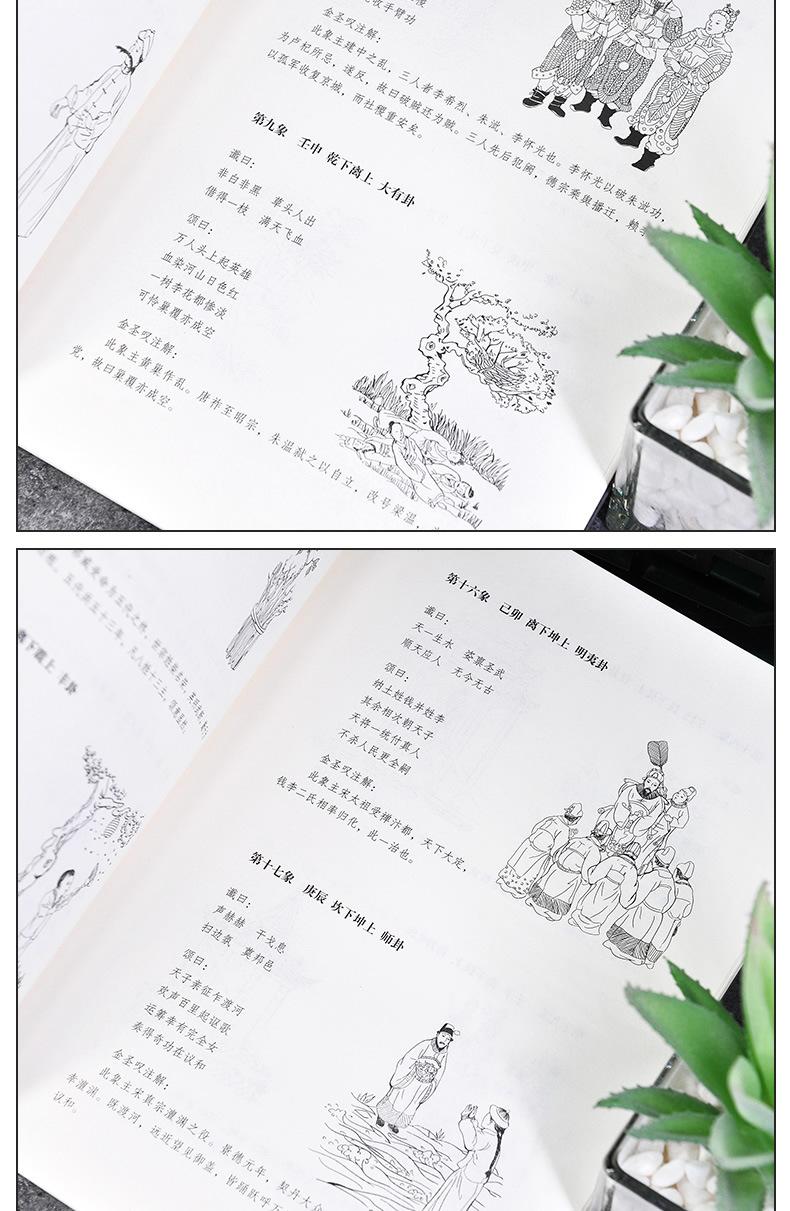 收手臂功
金圣叹注解：
此象主建中之乱，三人者李希烈、朱泚、李怀光也。李怀光以破朱泚功，
为卢杞所忌，遂反，故曰破贼还为贼。三人先后犯阙，德宗乘舆播迁，赖李
以孤军收复京城，而社稷重安矣。
第九象 壬申 乾下离上 大有卦
谶曰：
非白非黑 草头人出
借得一枝 满天飞血
颂曰：
万人头上起英雄
血染河山日色红
一树李花都惨淡
可怜巢覆亦成空
金圣叹注解：
此象主黄巢作乱。唐祚至昭宗，朱温弑之以自立，改号梁温，
党，故曰巢覆亦成空。
离下震上 丰卦
第十六象 己卯 离下坤上 明夷卦
谶曰：
天一生水 姿禀圣武
顺天应人 无今无古
颂曰：
纳土姓钱并姓李
其余相次朝天子
天将一统付真人
不杀人民更全嗣
金圣叹注解：
此象主宋太祖受禅汴都，天下大定，
钱李二氏相率归化，此一治也。
第十七象 庚辰 坎下坤上 师卦
谶曰：
声赫赫 干戈息
扫边氛 奠邦邑
颂曰：
天子亲征乍渡河
欢声百里起讴歌
运筹幸有完全女
奏得奇功在议和
金圣叹注解：
此象主宋真宗澶渊之役。景德元年，契丹大众
幸澶渊。既渡河，远近望见御盖，皆踊跃呼万
议和。